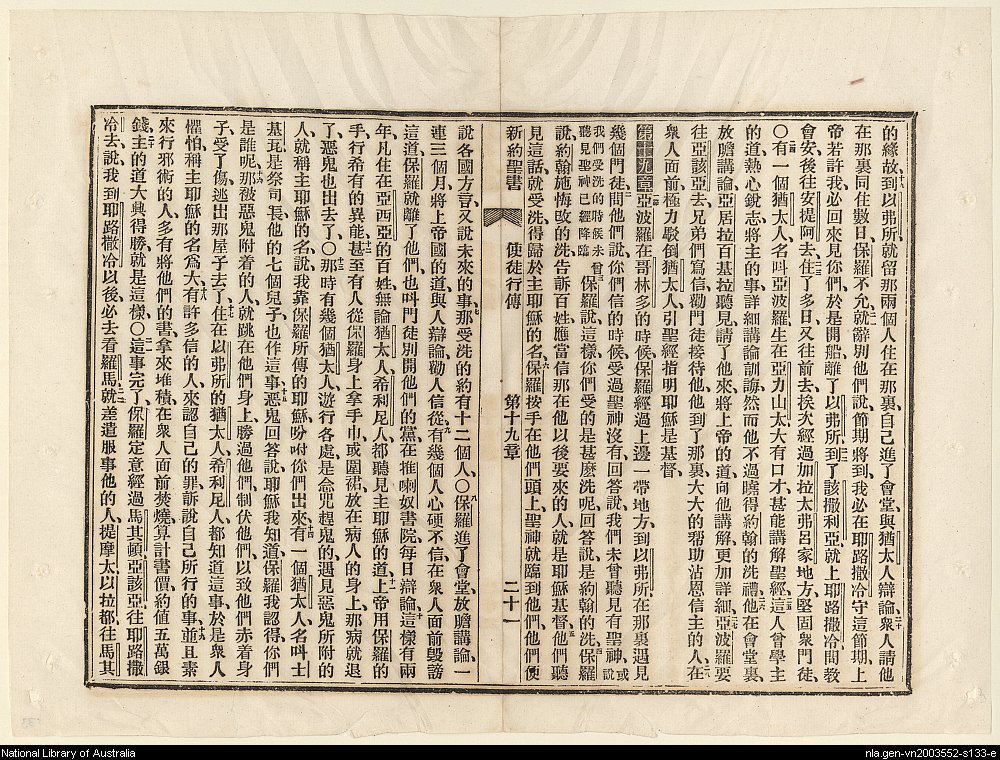 的緣故、到以弗所、就留那兩個人住在那裏、自己進了會堂、與猶太人辯論、衆人請他
在那裏同住數日、保羅不允、就辭別他們說、節期將到、我必在耶路撒冷守這節期、上
帝若許我、我必回來見你們、於是開船離了以弗所、到了該撒利亞、就上耶路撒冷、問教
會安、後往安提阿去、住了多日、又往前去、挨次經過加拉太弗呂家地方、堅固衆門徒、
〇有一個猶太人、名叫亞波羅、生在亞力山太、大有口才、甚能講解聖經、這人曾學主
的道、熱心銳志、將主的事、詳細講論訓誨、然而他不過曉得約翰的洗禮、他在會堂裏、
放膽講論、亞居拉百基拉聽見、請了他來、將上帝的道、向他講解、更加詳細、亞波羅要
往亞該亞去、兄弟們寫信、勸門徒接待他、他到了那裏、大大的幫助沾恩信主的人、在
衆人面前、極力駁倒猶太人、引聖經指明耶穌是基督、
第十九章 亞波羅在哥林多的時候、保羅經過上邊一帶地方、到以弗所、在那裏遇見
幾個門徒、問他們說、你們信的時候、受過聖神沒有、回答說、我們未曾聽見有聖神、或說
我們受洗的時候、未曾聽見聖神已經降臨 保羅說、這樣你們受的是甚麼洗呢、回答說、是約翰的洗、保羅
說、約翰施悔改的洗、告訴百姓、應當信那在他以後要來的人、就是耶穌基督、他們聽
見這話、就受洗、得歸於主耶穌的名、保羅按手在他們頭上、聖神就臨到他們、他們便
新約聖書 使徒行傳 第十九章 二十一
說各國方言、又說未來的事、那受洗的約有十二個人、〇保羅進了會堂、放膽講論、一
連三個月、將上帝國的道、與人辯論、勸人信從、有幾個人心硬不信、在衆人面前、毀謗
這道、保羅就離了他們、也叫門徒別開他們的黨、在推喇奴書院、每日辯論、這樣有兩
年、凡住在亞西亞的百姓、無論猶太人希利尼人、都聽見主耶穌的道、上帝用保羅的
手、行希有的異能、甚至有人從保羅身上拿手巾或圍裙、放在病人的身上、那病就退
了、惡鬼也出去了、〇那時有幾個猶太人、遊行各處、是念咒趕鬼的、遇見惡鬼所附的
人、就稱主耶穌的名、說、我靠保羅所傳的耶穌、吩咐你們出來、有一個猶太人、名叫士
基瓦、是祭司長、他的七個兒子、也作這事、惡鬼回答說、耶穌我知道、保羅我認得、你們
是誰呢、那被惡鬼附着的人、就跳在他們身上、勝過他們、制伏他們、以致他們赤着身
子、受了傷、逃出那屋子去了、住在以弗所的猶太人希利尼人、都知道這事、於是衆人
懼怕、稱主耶穌的名爲大、有許多信的人、來認自己的罪、訴說自己所行的事、並且素
來行邪術的人、多有將他們的書、拿來堆積在衆人面前焚燒、算計書價、約值五萬銀
錢、主的道大興、得勝就是這樣、〇這事完了、保羅定意經過馬其頓、亞該亞、往耶路撒
冷去、說、我到耶路撒冷以後、必去看羅馬、就差遣服事他的人、提摩太、以拉都、往馬其
National Library of Australia
nla.gen-vn2003552-s133-e